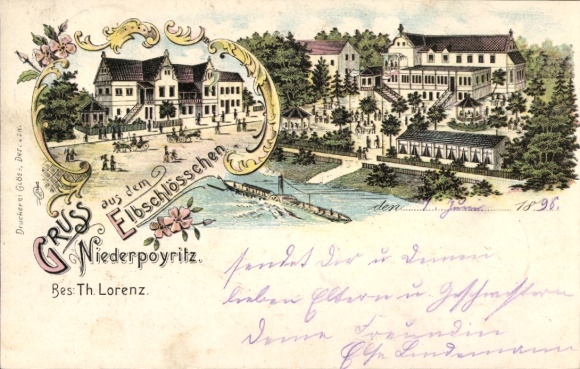 GRUSS aus dem Elbschlösschen
Niederpoyritz.
Bes: Th. Lorenz.
den 9. Juni 1898.
sendet Dir u. Deinen
lieben Eltern u. Geschwistern
Deine Freundin
Else Lindemann
Druckerei Glöss, Dresden.